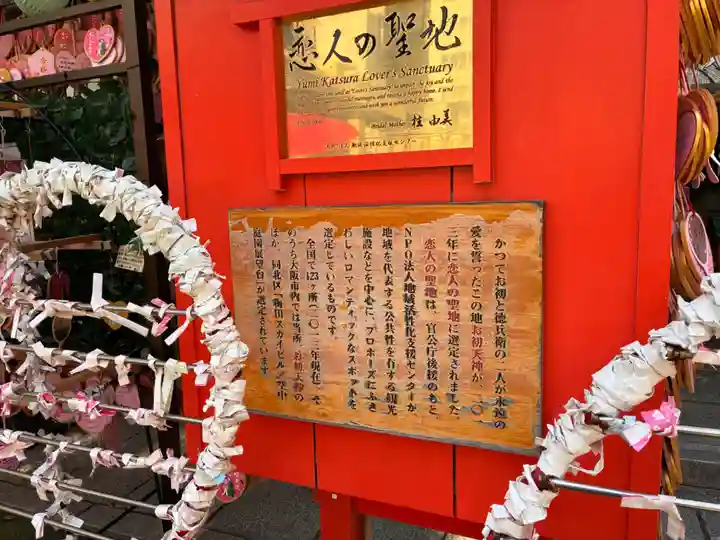 恋人の聖地
Yumi Katsura Lover's Sanctuary
Bridal Mother 桂 由美
かつてお初と徳兵衛の二人が永遠の
愛を誓ったこの地お初天神が、二〇一
三年に恋人の聖地に選定されました。
恋人の聖地は、官公庁後援のもと、
NPO法人地域活性化支援センターが、
地域を代表する公共性を有する観光
施設などを中心に、プロポーズにふさ
わしいロマンティックなスポットを
選定しているものです。
全国で123ヶ所(二〇一三年現在)、そ
のうち大阪市内では当所「お初天神の
ほか、同北区「梅田スカイビル/空中
庭園展望台」が選定されています。